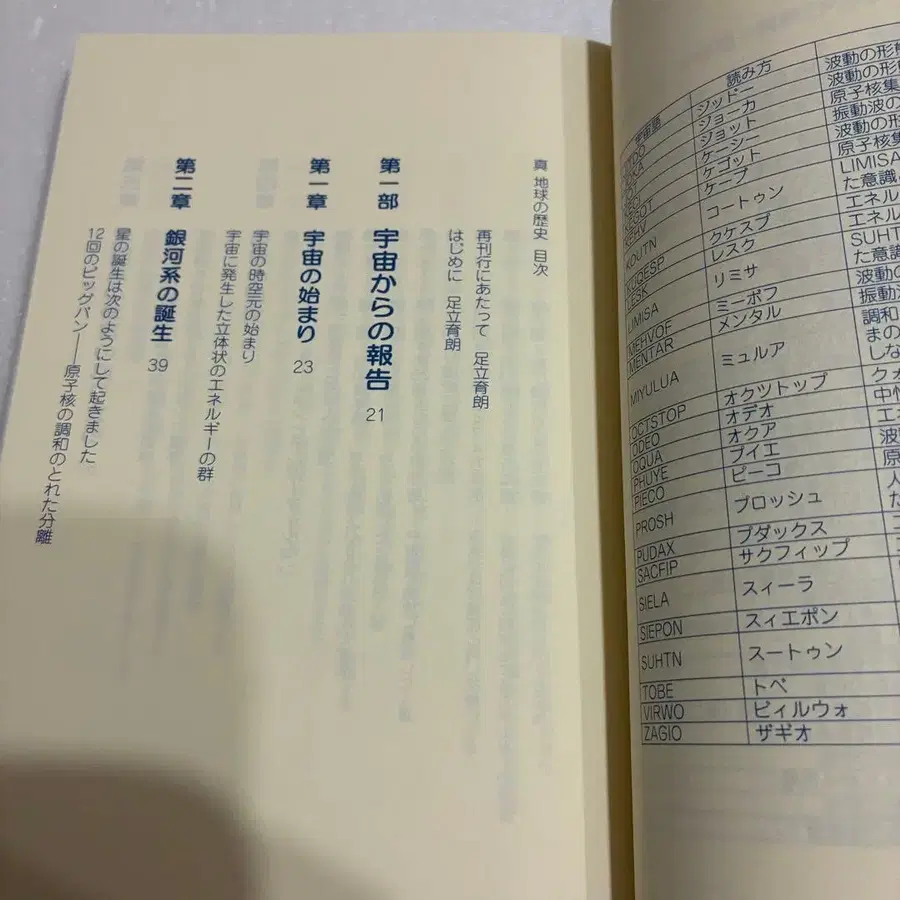 宇宙語 読み方
ジッドー 波動の形
ジョーカ 波動の形
ジョット 原子核集
ケーシー 振動波の
KEGOT ケゴット 波動の形
KEHV ケーブ 原子核集
KOUTN コートゥン LIMISA
た意識
KUQESP クケスプ エネル
LESK レスク エネル
LIMISA リミサ SUHTN
た意識
MEHVOF ミーポフ 波動の
MENTAR メンタル 振動波
MIYULUA ミュルア 調和
まの
しな
OCTSTOP オクツトップ クォ
ODEO オデオ 中性
OQUA オクア エネ
PHUYE ブイエ 波動
PIECO ピーコ 原
PROSH プロッシュ 人
た
PUDAX プダックス
SACFIP サクフィップ
SIELA スィーラ
SIEPON スィエポン
SUHTN スートゥン
TOBE トベ
VIRWO ビィルウォ
ZAGIO ザギオ
真 地球の歴史 目次
再刊行にあたって 足立育朗
はじめに 足立育朗
第一部 宇宙からの報告 21
第一章 宇宙の始まり 23
宇宙の時空元の始まり
宇宙に発生した立体状のエネルギーの群
第二章 銀河系の誕生 39
星の誕生は次のようにして起きました
12回のビッグバン――原子核の調和のとれた分離